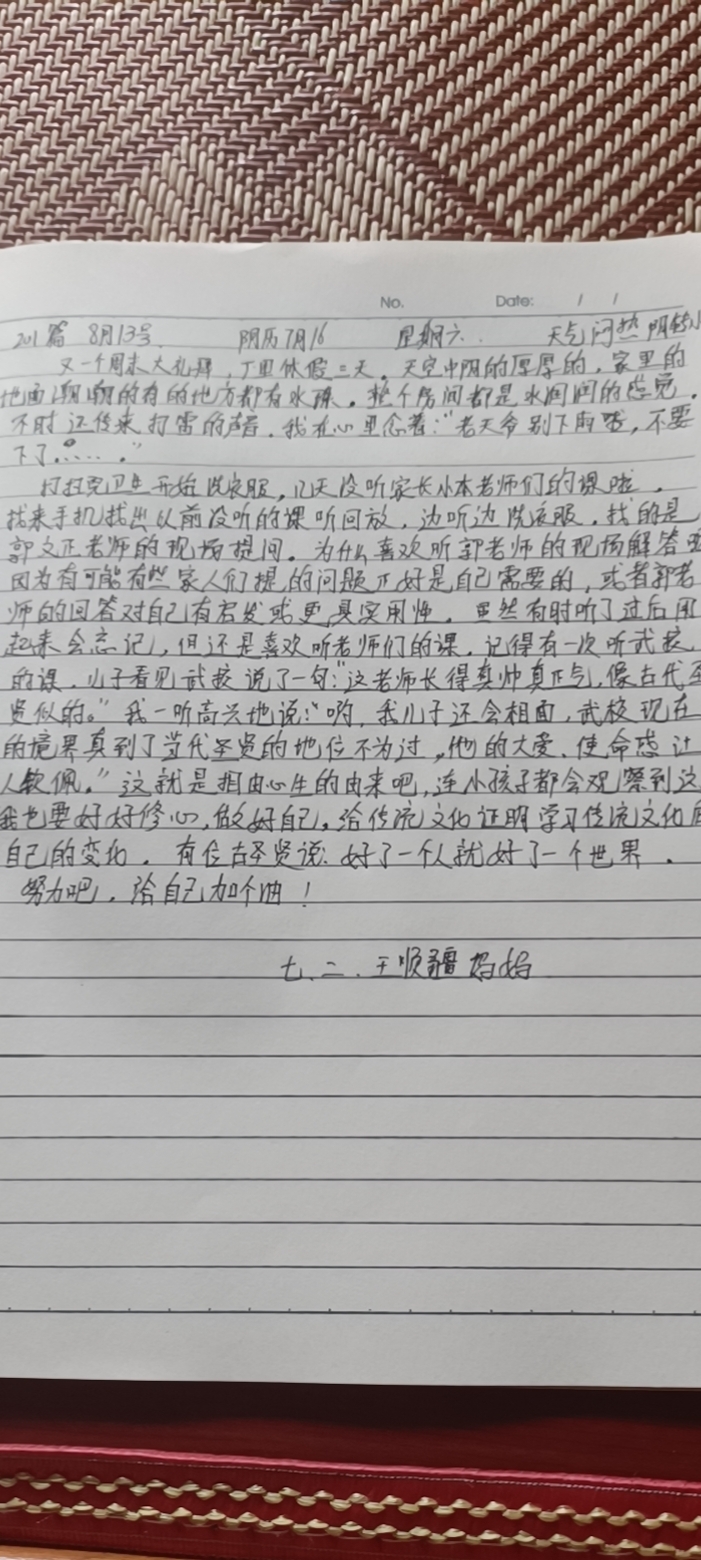 No. Date: / /
201篇 8月13号 阴历7月16 星期六. 天气闷热 阴转小
又一个周末大礼拜,丁里休假二天。天空中阴的厚厚的,家里的
地面潮潮的有的地方都有水珠。整个房间都是水润润的感觉。
不时还传来打雷的声音。我在心里念着:"老天爷别下雨啦,不要
下了。……"
打扫完卫生开始洗衣服,几天没听家长小本老师们的课啦。
找来手机找出以前没听的课听回放,边听边洗衣服。找的是
郭文正老师的现场提问。为什么喜欢听郭老师的现场解答呢
因为有可能有些家人们提的问题正好是自己需要的,或者郭老
师的回答对自己有启发或更具实用性。虽然有时听了过后用
起来会忘记,但还是喜欢听老师们的课。记得有一次听武校
的课,儿子看见武校说了一句:"这老师长得真帅真正气,像古代圣
贤似的。"我一听高兴地说:"哟,我儿子还会相面,武校现在
的境界真到了当代圣贤的地位不为过,他的大爱、使命感让
人钦佩。"这就是相由心生的由来吧,连小孩子都会观察到这
我也要好好修心,做好自己,给传统文化证明学习传统文化后
自己的变化。有位古圣贤说:好了一个人就好了一个世界。
努力吧,给自己加个油!
七.二.王顺疆妈妈